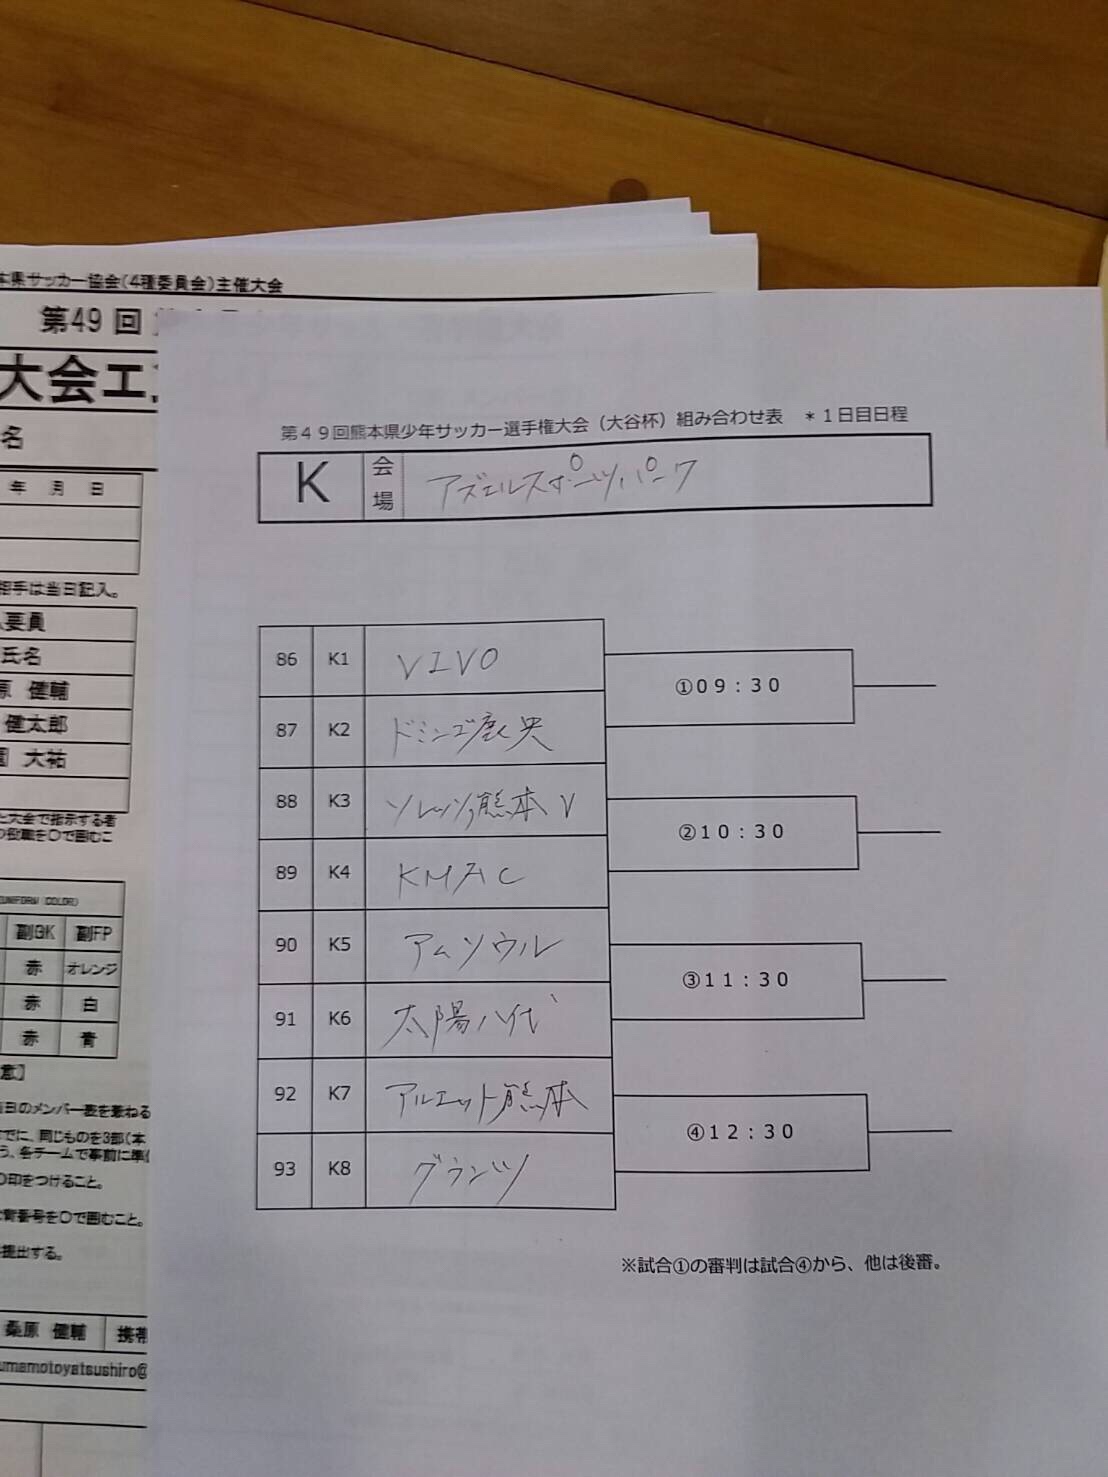 本県サッカー協会(4種委員会)主催大会
第49回
大会エ
名
年 月 日
相手は当日記入。
要員
氏名
原 健輔
健太郎
大祐
た大会で指示する者
の役職を〇で囲むこ
UNIFORM (COLOR)
副GK 副FP
赤 オレンジ
赤 白
赤 青
意】
当日のメンバー表を兼ねる
でに、同じものを3部(本
う。各チームで事前に準備
〇印をつけること。
背番号を〇で囲むこと。
提出する。
桑原 健輔 携帯
umamotoyatsushiro@
第49回熊本県少年サッカー選手権大会（大谷杯）組み合わせ表 *1日目日程
K 会場 アズエルスポーツパーク
86 K1 VIVO
①09:30
87 K2 ドミンゴ鹿央
88 K3 ソレッソ熊本V
②10:30
89 K4 KMAC
90 K5 アムソウル
③11:30
91 K6 太陽八代
92 K7 アルエット熊本
④12:30
93 K8 グランツ
※試合①の審判は試合④から、他は後審。